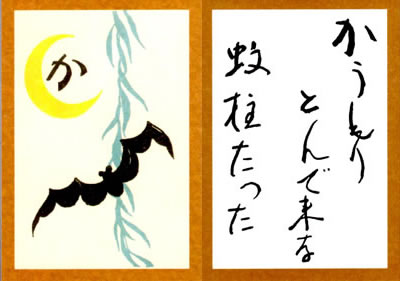 か
かうもり
とんで来な
蚊柱たった